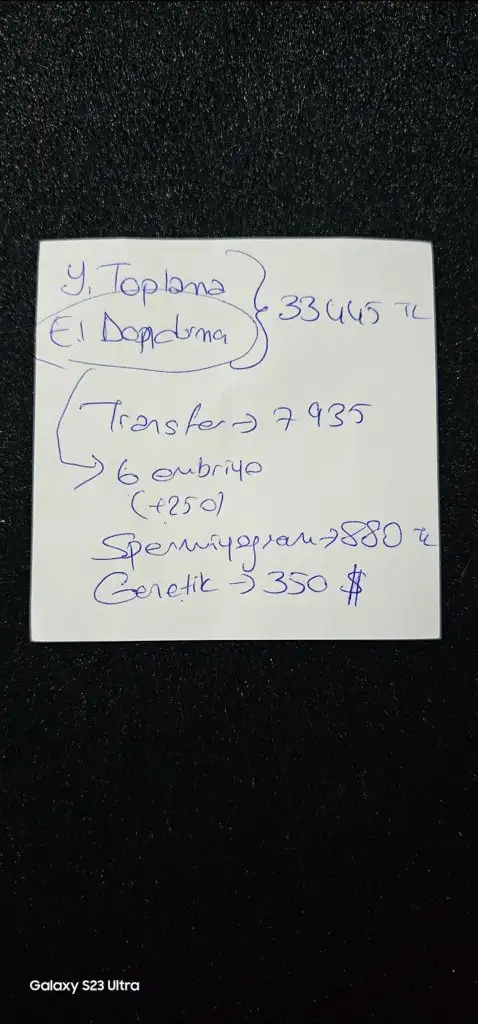 Y. Toplama
E. Dondurma
33445 TL
Transfer → 7935
→ 6 embriyo
(+250)
Spermiyogram → 880 TL
Genetik → 350 $
Galaxy S23 Ultra